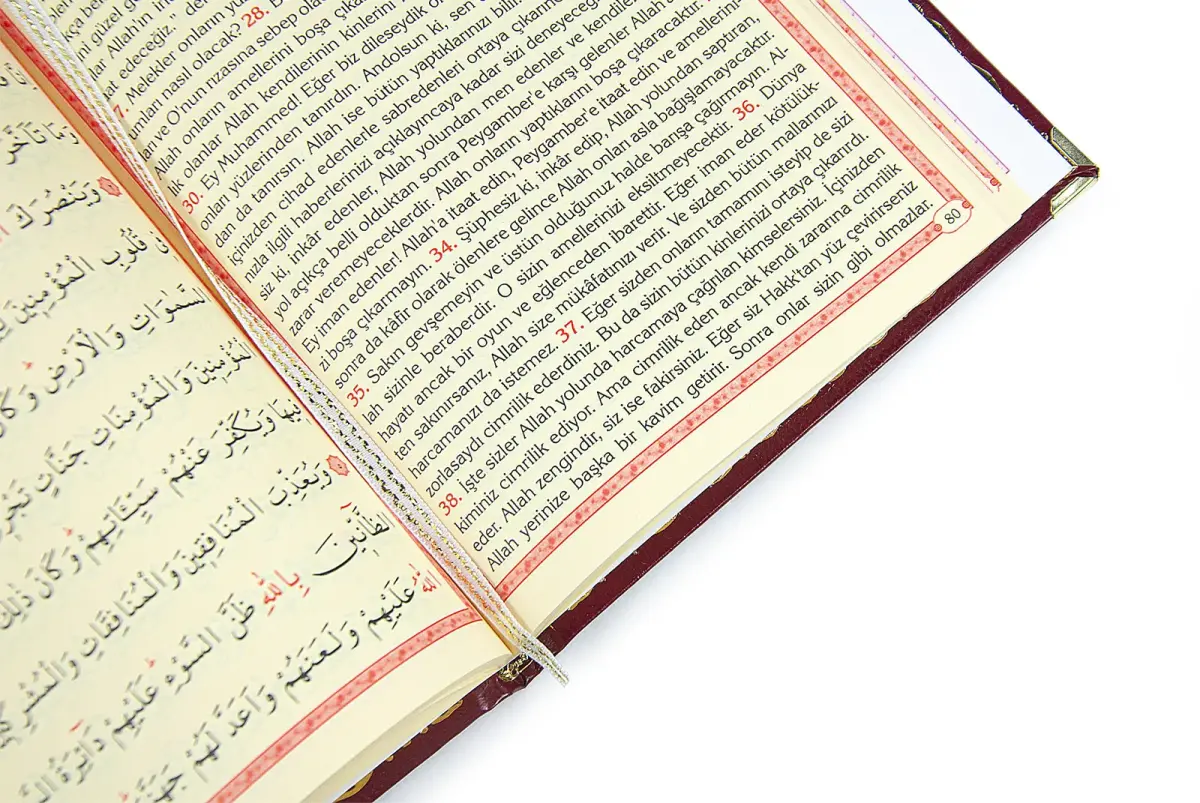 ni güzel
Allah'ın
eceğiz.” der
Melekler onların
umları nasıl olacak? 28.
ve O'nun rızasına sebep
Allah onların amellerini boşa
lık olanlar Allah kendilerinin kinlerini
30. Ey Muhammed! Eğer biz dileseydik
onları yüzlerinden tanırdın. Andolsun ki, sen
dan da tanırsın. Allah ise bütün yaptıklarınızı
içinizden cihad edenlerle sabredenleri ortaya
nızla ilgili haberlerinizi açıklayıncaya kadar sizi
siz ki, inkâr edenler, Allah yolundan men edenler ve
yol açıkça belli olduktan sonra Peygamber'e karşı gelenler
zarar veremeyeceklerdir. Allah onların yaptıklarını boşa çıkaracaktır.
Ey iman edenler! Allah'a itaat edin, Peygamber'e itaat edin ve amellerini-
zi boşa çıkarmayın. 34. Şüphesiz ki, inkâr edip, Allah yolundan saptıran,
sonra da kâfir olarak ölenlere gelince Allah onları asla bağışlamayacaktır.
35. Sakın gevşemeyin ve üstün olduğunuz halde barışa çağırmayın. Al-
lah sizinle beraberdir. O sizin amellerinizi eksiltmeyecektir. 36. Dünya
hayatı ancak bir oyun ve eğlenceden ibarettir. Eğer iman eder kötülük-
ten sakınırsanız, Allah size mükâfatınızı verir. Ve sizden bütün mallarınızı
harcamanızı da istemez. 37. Eğer sizden onların tamamını isteyip de sizi
zorlasaydı cimrilik ederdiniz. Bu da sizin bütün kinlerinizi ortaya çıkarırdı.
38. İşte sizler Allah yolunda harcamaya çağrılan kimselersiniz. İçinizden
kiminiz cimrilik ediyor. Ama cimrilik eden ancak kendi zararına cimrilik
eder. Allah zengindir, siz ise fakirsiniz. Eğer siz Hakk'tan yüz çevirirseniz
Allah yerinize başka bir kavim getirir. Sonra onlar sizin gibi olmazlar.
80
وَمَا تَأَخَّرَ
وَيَنْصُرَكَ
قُلُوبِ الْمُؤْمِنِينَ
السَّمٰوَاتِ وَالْاَرْضِ وَكَانَ
الْمُؤْمِنِينَ وَالْمُؤْمِنَاتِ جَنَّاتٍ
فِيهَا وَيُكَفِّرَ عَنْهُمْ سَيِّـَٔاتِهِمْ وَكَانَ ذٰلِكَ
وَيُعَذِّبَ الْمُنَافِقِينَ وَالْمُنَافِقَاتِ
الظَّٓانِّينَ بِاللّٰهِ ظَنَّ السَّوْءِ عَلَيْهِمْ دَٓائِرَةُ
اللّٰهُ عَلَيْهِمْ وَلَعَنَهُمْ وَاَعَدَّ لَهُمْ